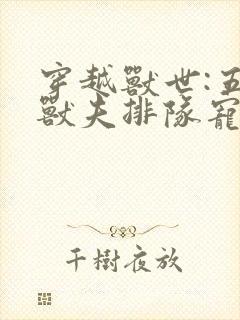 穿越獸世:五
獸夫排隊寵
千樹夜放